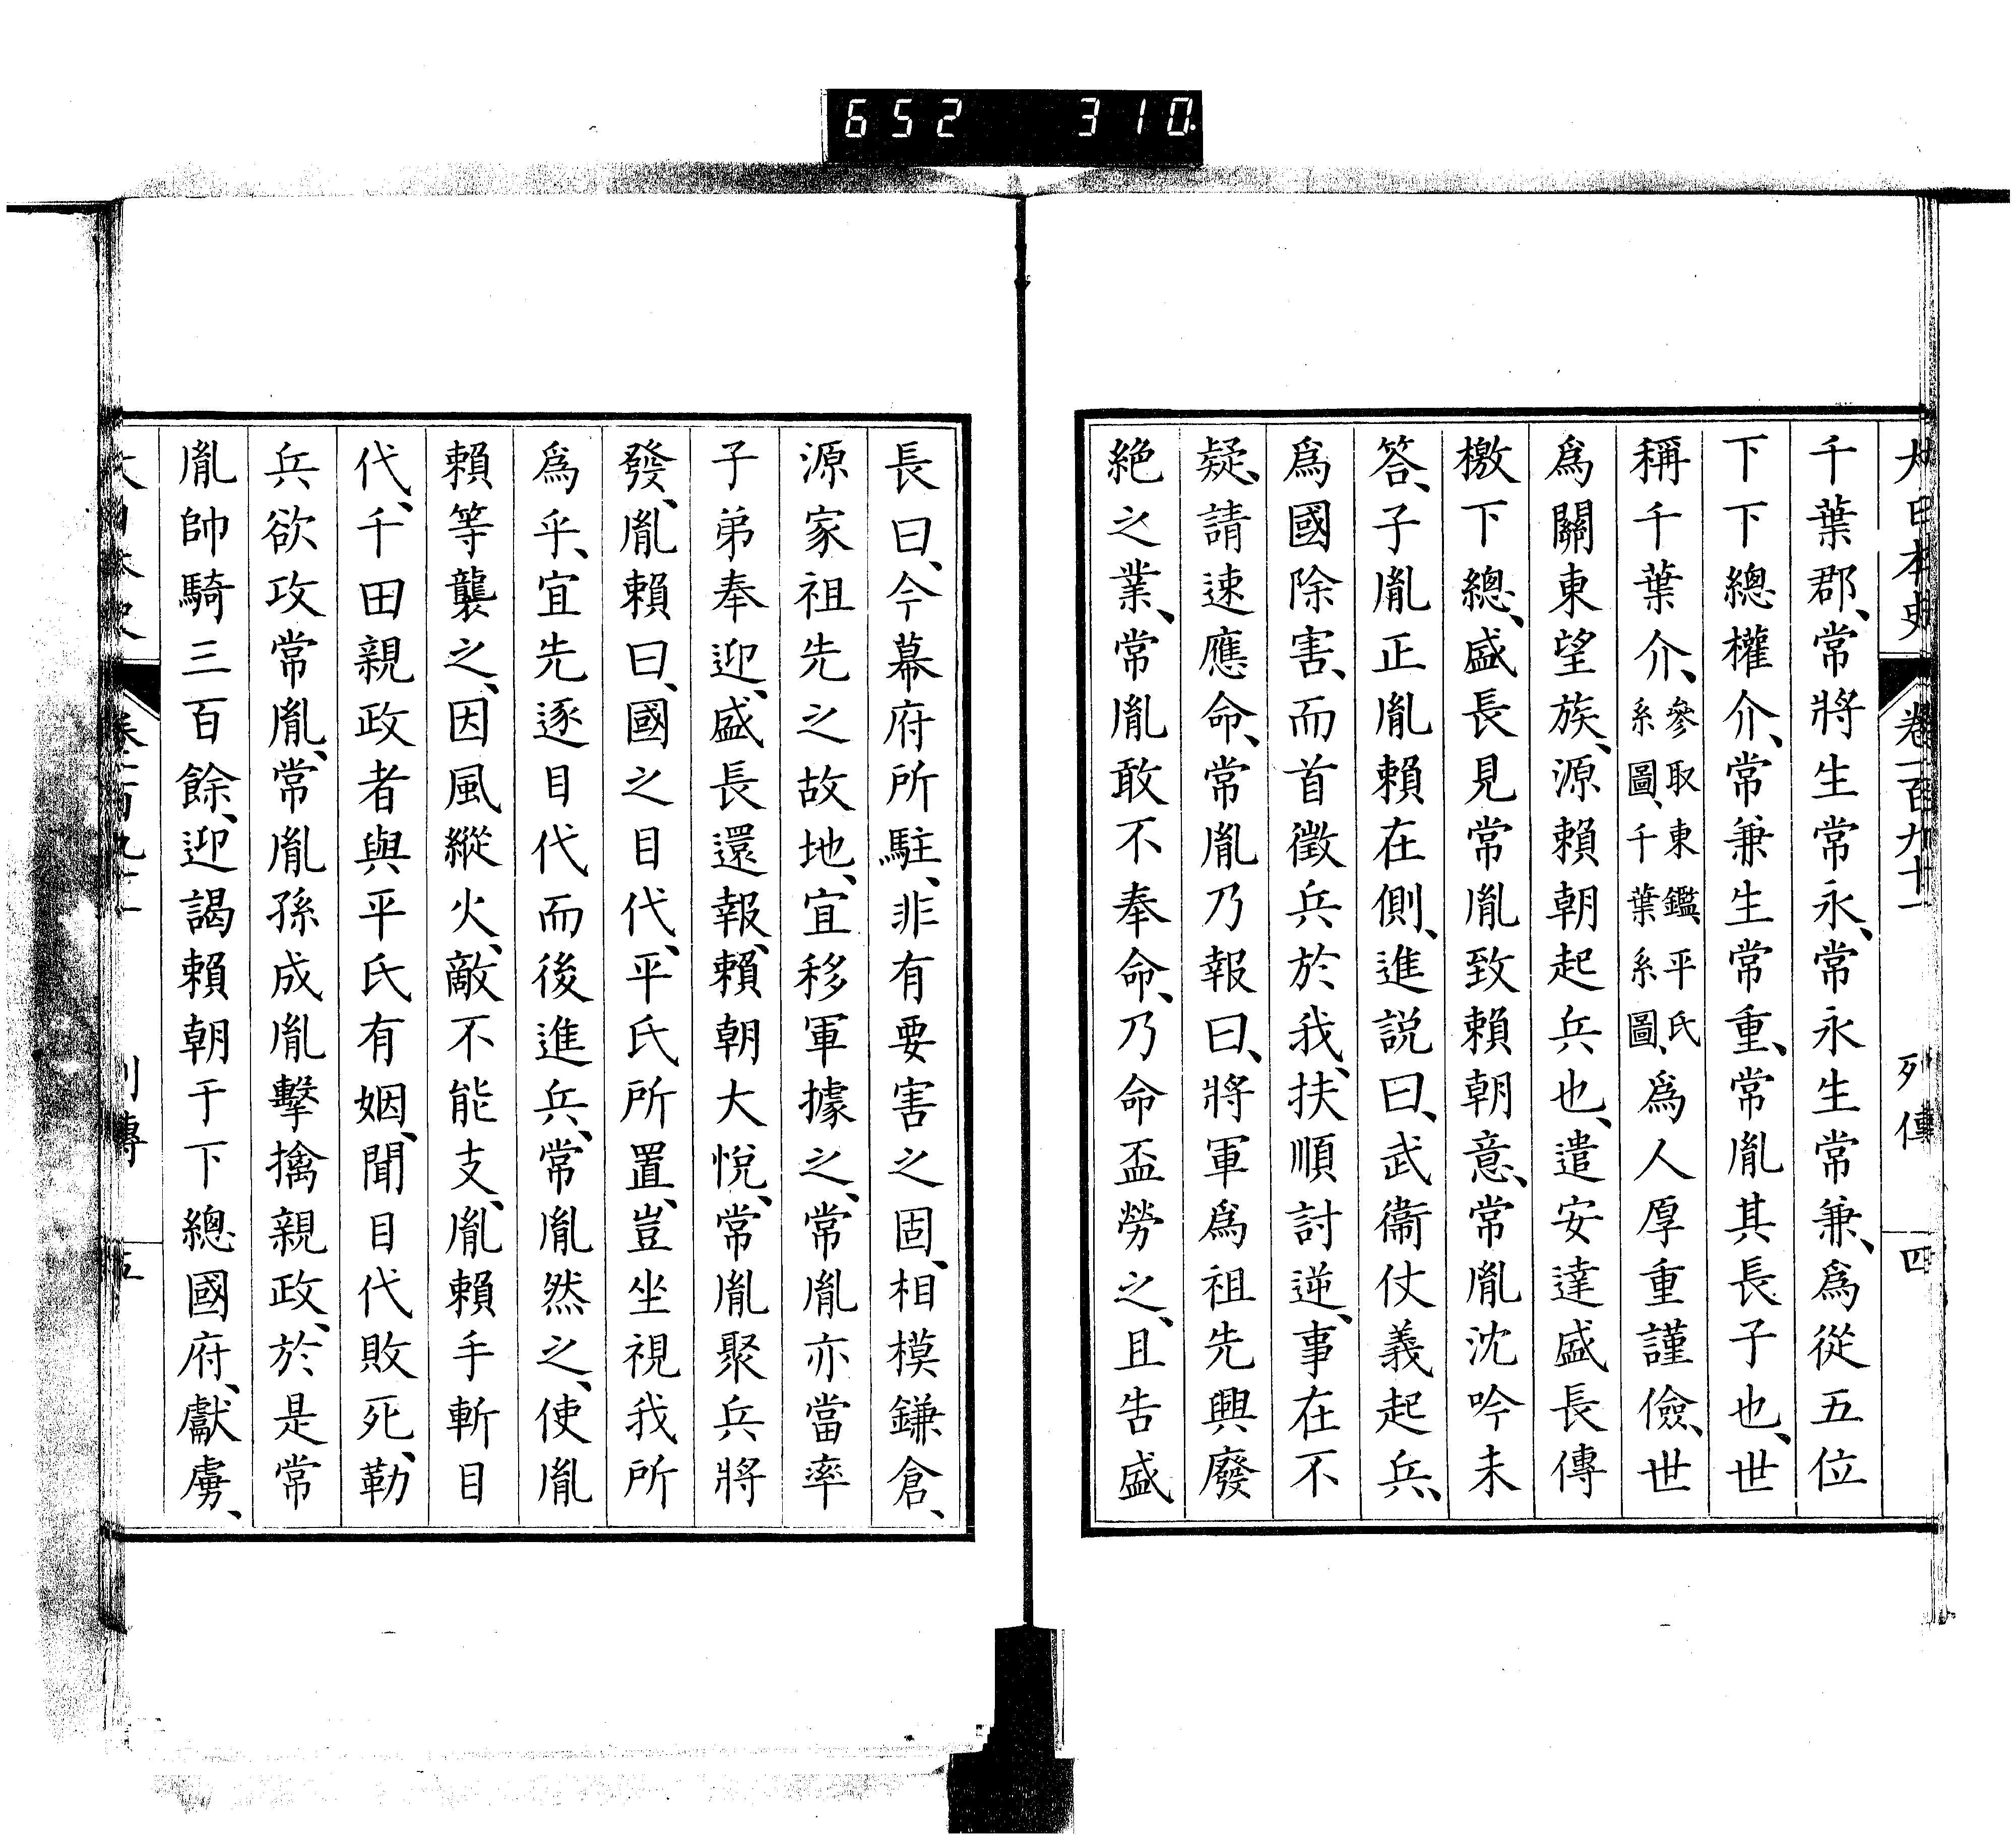 652 310.
大日本史 卷一百九十一 列傳 四
千葉郡、常將生常永、常永生常兼、爲從五位
下下總權介、常兼生常重、常胤其長子也、世
稱千葉介、參取東鑑、平氏系圖、千葉系圖、爲人厚重謹儉、世
爲關東望族、源賴朝起兵也、遣安達盛長傳
檄下總、盛長見常胤致賴朝意、常胤沈吟未
答、子胤正胤賴在側、進説曰、武衞仗義起兵、
爲國除害、而首徵兵於我、扶順討逆、事在不
疑、請速應命、常胤乃報曰、將軍爲祖先興廢
絶之業、常胤敢不奉命、乃命盃勞之、且告盛
長曰、今幕府所駐、非有要害之固、相模鎌倉、
源家祖先之故地、宜移軍據之、常胤亦當率
子弟奉迎、盛長還報、賴朝大悅、常胤聚兵將
發、胤賴曰、國之目代、平氏所置、豈坐視我所
爲乎、宜先逐目代而後進兵、常胤然之、使胤
賴等襲之、因風縱火、敵不能支、胤賴手斬目
代、千田親政者與平氏有姻、聞目代敗死、勒
兵欲攻常胤、常胤孫成胤擊擒親政、於是常
胤帥騎三百餘、迎謁賴朝于下總國府、獻虜、